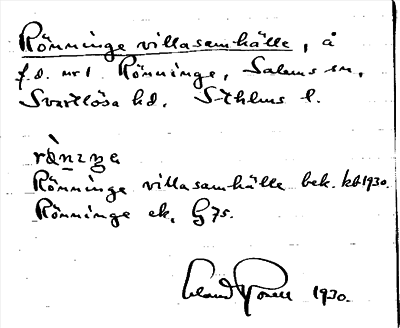 Rönninge villasamhälle, å
f.d. nr 1 Rönninge, Salems sn,
Svartlösa hd. Sthlms l.
rö̀nıŋe
Rönninge villasamhälle bek. kb 1930.
Rönninge ek. G 75.
1930.